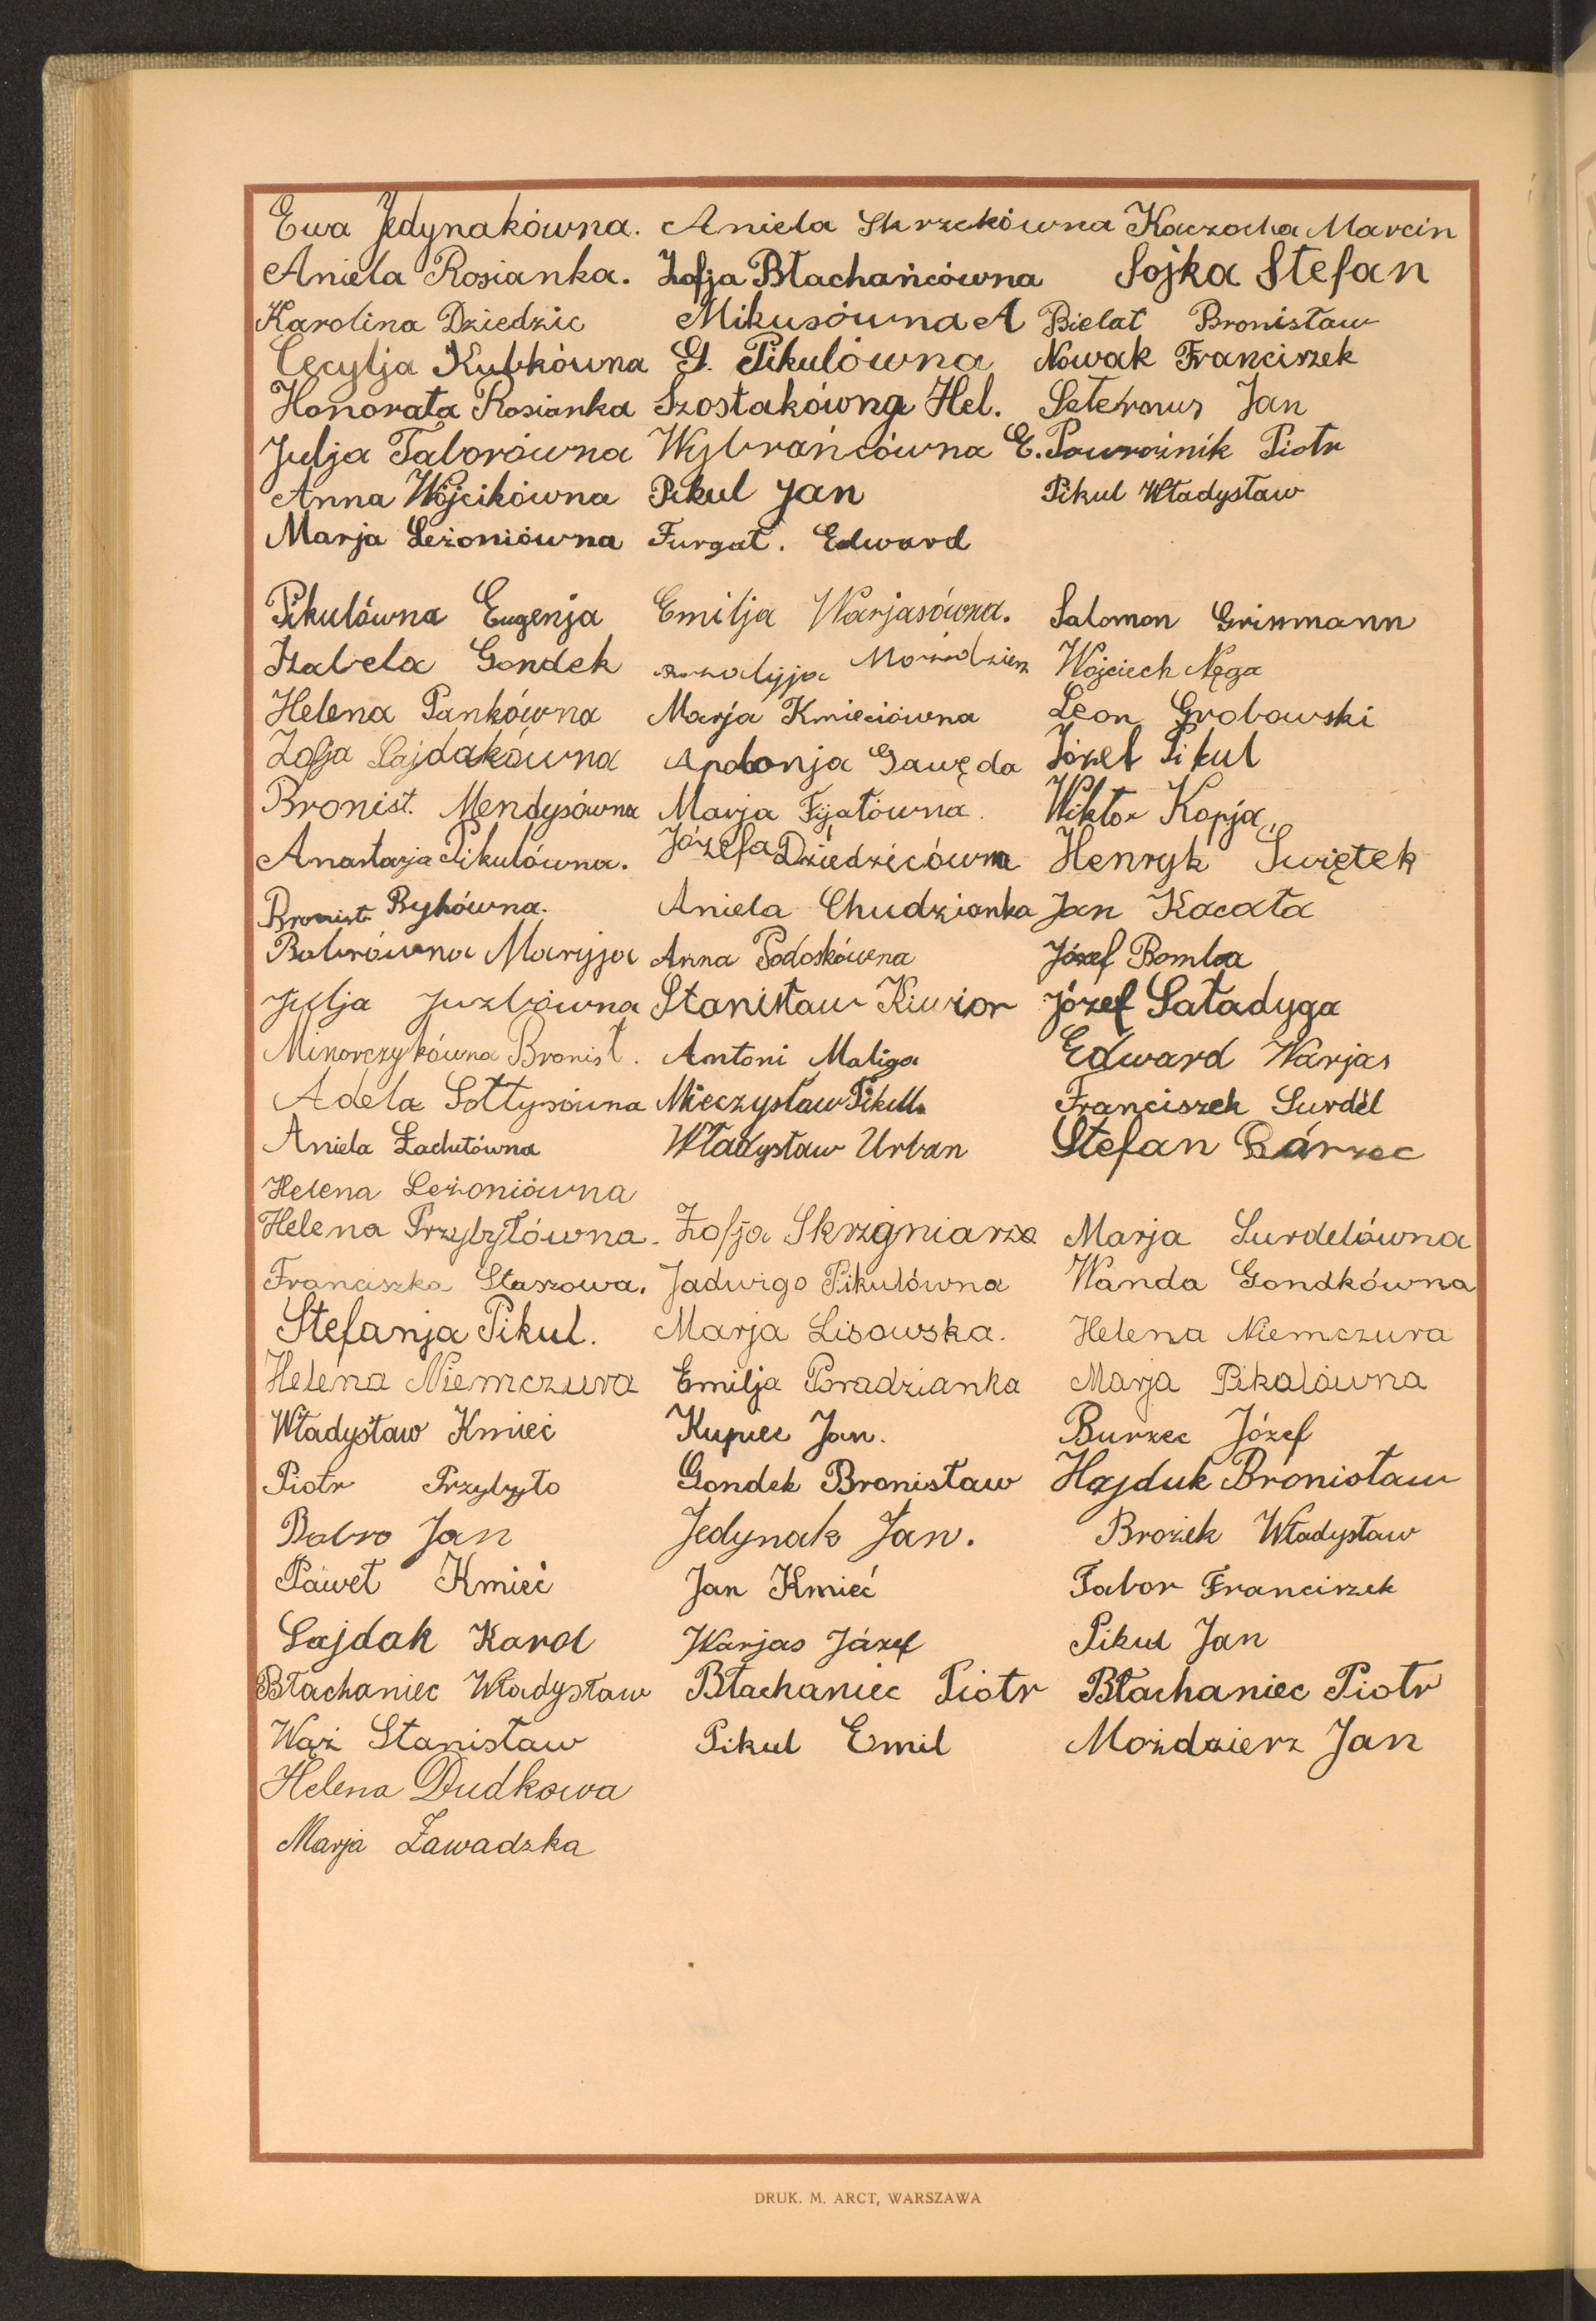 Ewa Jedynakówna. Aniela Skrzekówna Kaczocha Marcin
Aniela Rosianka. Zofja Błachańcówna Sojka Stefan
Karolina Dziedzic Mikusówna A Bielat Bronisław
Cecylja Kubkówna G. Pikulówna Nowak Franciszek
Honorata Rosianka Szostakówna Hel. Jan
Julja Taborówna Wybrańcówna E. Powroźnik Piotr
Anna Wójcikówna Pikul Jan Pikul Władysław
Marja Leżoniówna Furgat. Edward
Pikulówna Eugenja Emilja Warjasówna. Salomon
Izabela Gondek Moździerz Wojciech Nęga
Helena Pankówna Marja Kmieciówna Leon Grobowski
Zofja Sajdakówna Apolonja Gawęda Józef Pikul
Bronisł. Mendysówna Marja Fijałówna. Wiktor Kopja
Anastazja Pikulówna. Józefa Dziedzicówna Henryk Świętek
Bronisł. Rykówna. Aniela Chudzianka Jan Kacała
Bobrówna Maryja Anna Podoskówna Józef Bomba
Julja Juzbówna Stanisław Kiwior Józef Saładyga
Minorczykówna Bronisł. Antoni Maliga Edward Warjas
Adela Sołtysówna Mieczysław Pikul Franciszek Surdel
Aniela Żachutówna Władysław Urban Stefan
Helena Leżoniówna
Helena Przybyłówna. Zofja Skrzyniarz Marja Surdelówna
Franciszka Staszowa. Jadwiga Pikulówna Wanda Gondkówna
Stefanja Pikul. Marja Lisowska. Helena Niemczura
Helena Niemczura Emilja Poradzianka Marja Pikulówna
Władysław Kmieć Kupiec Jan. Burzec Józef
Piotr Przybyło Gondek Bronisław Hajduk Bronisław
Bobro Jan Jedynak Jan. Brożek Władysław
Paweł Kmieć Jan Kmieć Tabor Franciszek
Sajdak Karol Warjas Józef Pikul Jan
Błachaniec Władysław Błachaniec Piotr Błachaniec Piotr
Wąż Stanisław Pikul Emil Moździerz Jan
Helena Dudkowa
Marja Zawadzka
DRUK. M. ARCT, WARSZAWA